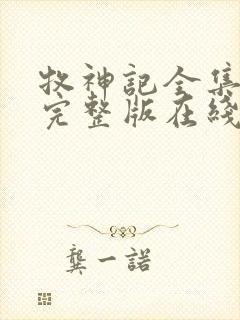 牧神記全集
完整版在綫
龔一諾